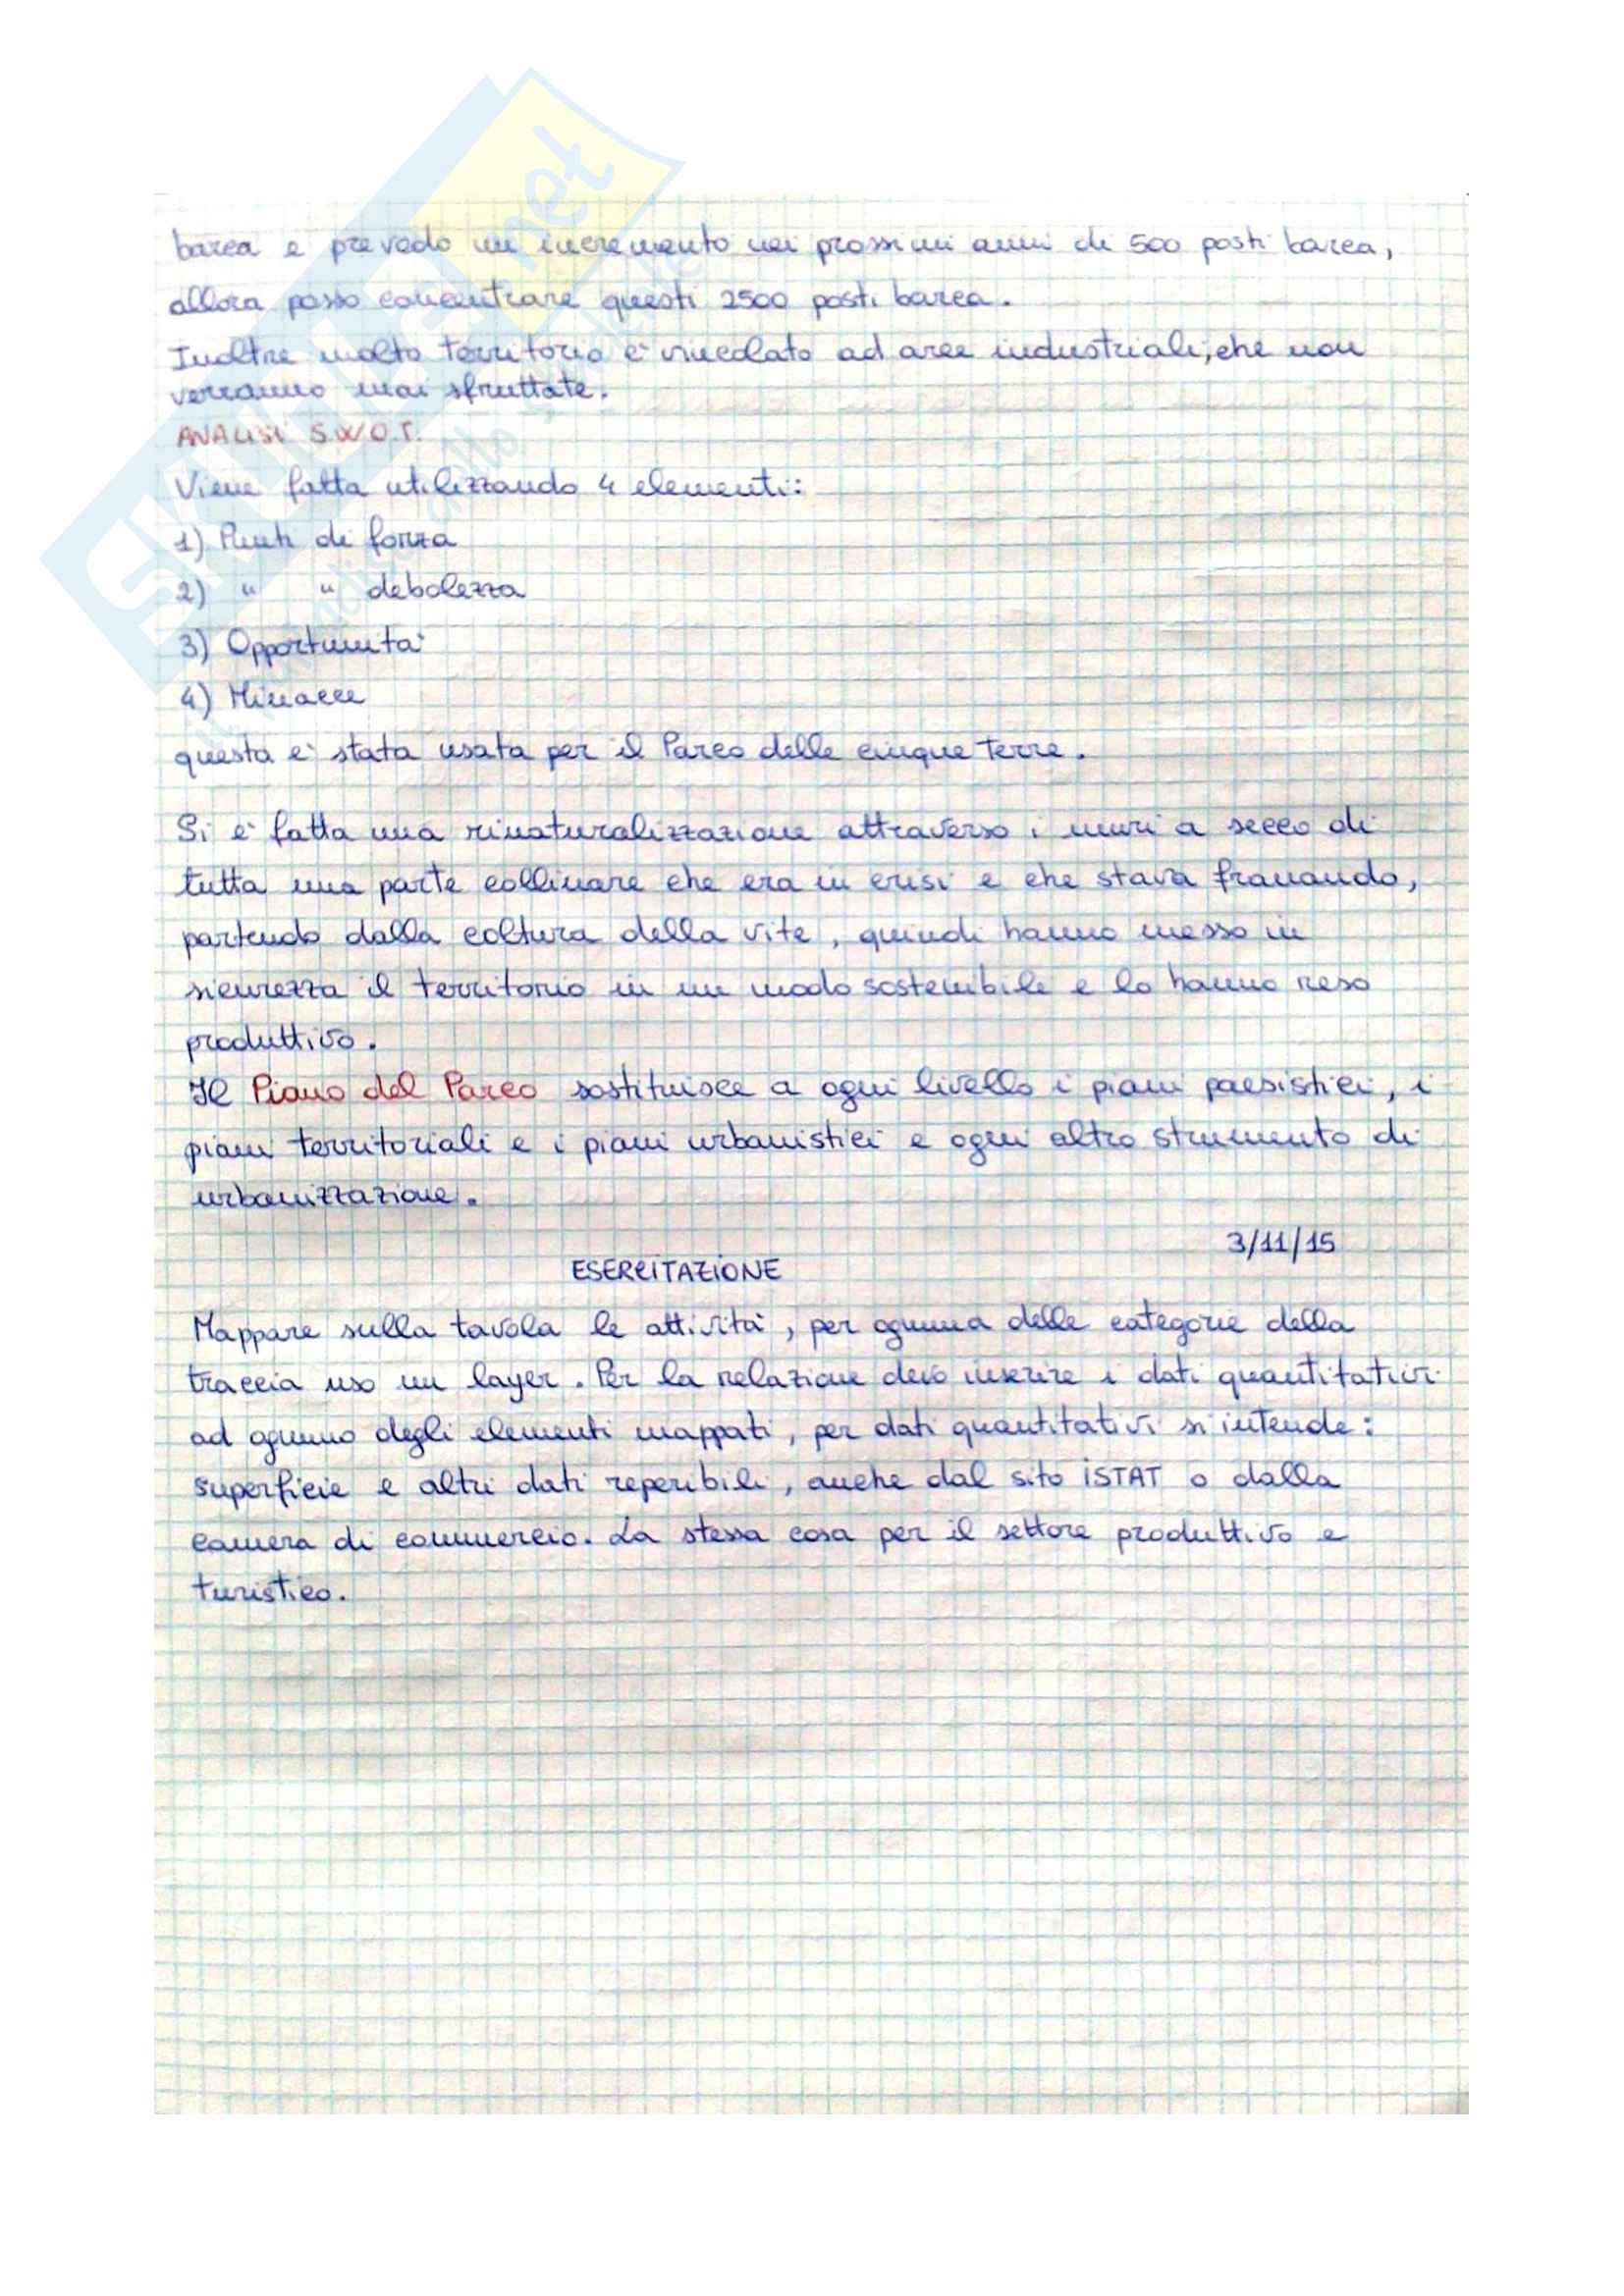 barca e prevedo un incremento nei prossimi anni di 500 posti barca,
allora posso concentrare questi 2500 posti barca.
Inoltre molto territorio è vincolato ad aree industriali, che non
verranno mai sfruttate.
ANALISI S.W.O.T.
Viene fatta utilizzando 4 elementi:
1) Punti di forza
2) " " debolezza
3) Opportunità
4) Minacce
questa è stata usata per il Parco delle cinque Terre.
Si è fatta una rinaturalizzazione attraverso i muri a secco di
tutta una parte collinare che era in crisi e che stava franando,
partendo dalla coltura della vite, quindi hanno messo in
sicurezza il territorio in un modo sostenibile e lo hanno reso
produttivo.
Il Piano del Parco sostituisce a ogni livello i piani paesistici, i
piani territoriali e i piani urbanistici e ogni altro strumento di
urbanizzazione.
3/11/15
ESERCITAZIONE
Mappare sulla tavola le attività, per ognuna delle categorie della
traccia uso un layer. Per la relazione devo inserire i dati quantitativi
ad ognuno degli elementi mappati, per dati quantitativi si intende:
superficie e altri dati reperibili, anche dal sito ISTAT o dalla
camera di commercio. La stessa cosa per il settore produttivo e
turistico.
SKUOLA.net